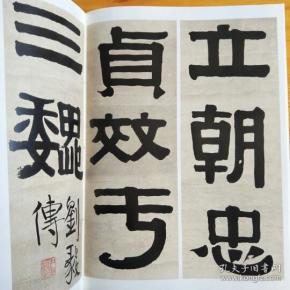 立朝忠
貞效于
三魏
劉毅
傳
孔夫子旧书网